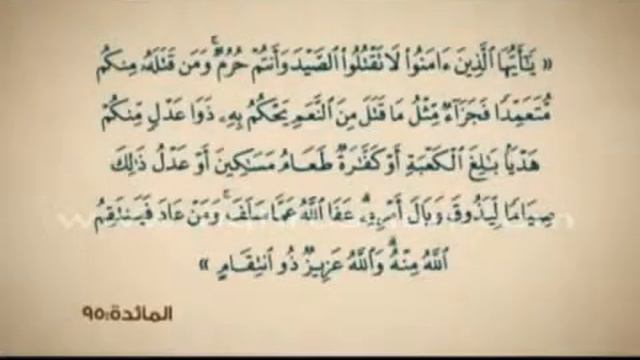 « يَٰٓأَيُّهَا ٱلَّذِينَ ءَامَنُوا۟ لَا تَقْتُلُوا۟ ٱلصَّيْدَ وَأَنتُمْ حُرُمٌ ۚ وَمَن قَتَلَهُۥ مِنكُم
مُّتَعَمِّدًا فَجَزَآءٌ مِّثْلُ مَا قَتَلَ مِنَ ٱلنَّعَمِ يَحْكُمُ بِهِۦ ذَوَا عَدْلٍ مِّنكُمْ
هَدْيًۢا بَٰلِغَ ٱلْكَعْبَةِ أَوْ كَفَّٰرَةٌ طَعَامُ مَسَٰكِينَ أَوْ عَدْلُ ذَٰلِكَ
صِيَامًا لِّيَذُوقَ وَبَالَ أَمْرِهِۦ ۗ عَفَا ٱللَّهُ عَمَّا سَلَفَ ۚ وَمَنْ عَادَ فَيَنتَقِمُ
ٱللَّهُ مِنْهُ ۗ وَٱللَّهُ عَزِيزٌ ذُو ٱنتِقَامٍ »
المائدة:٩٥